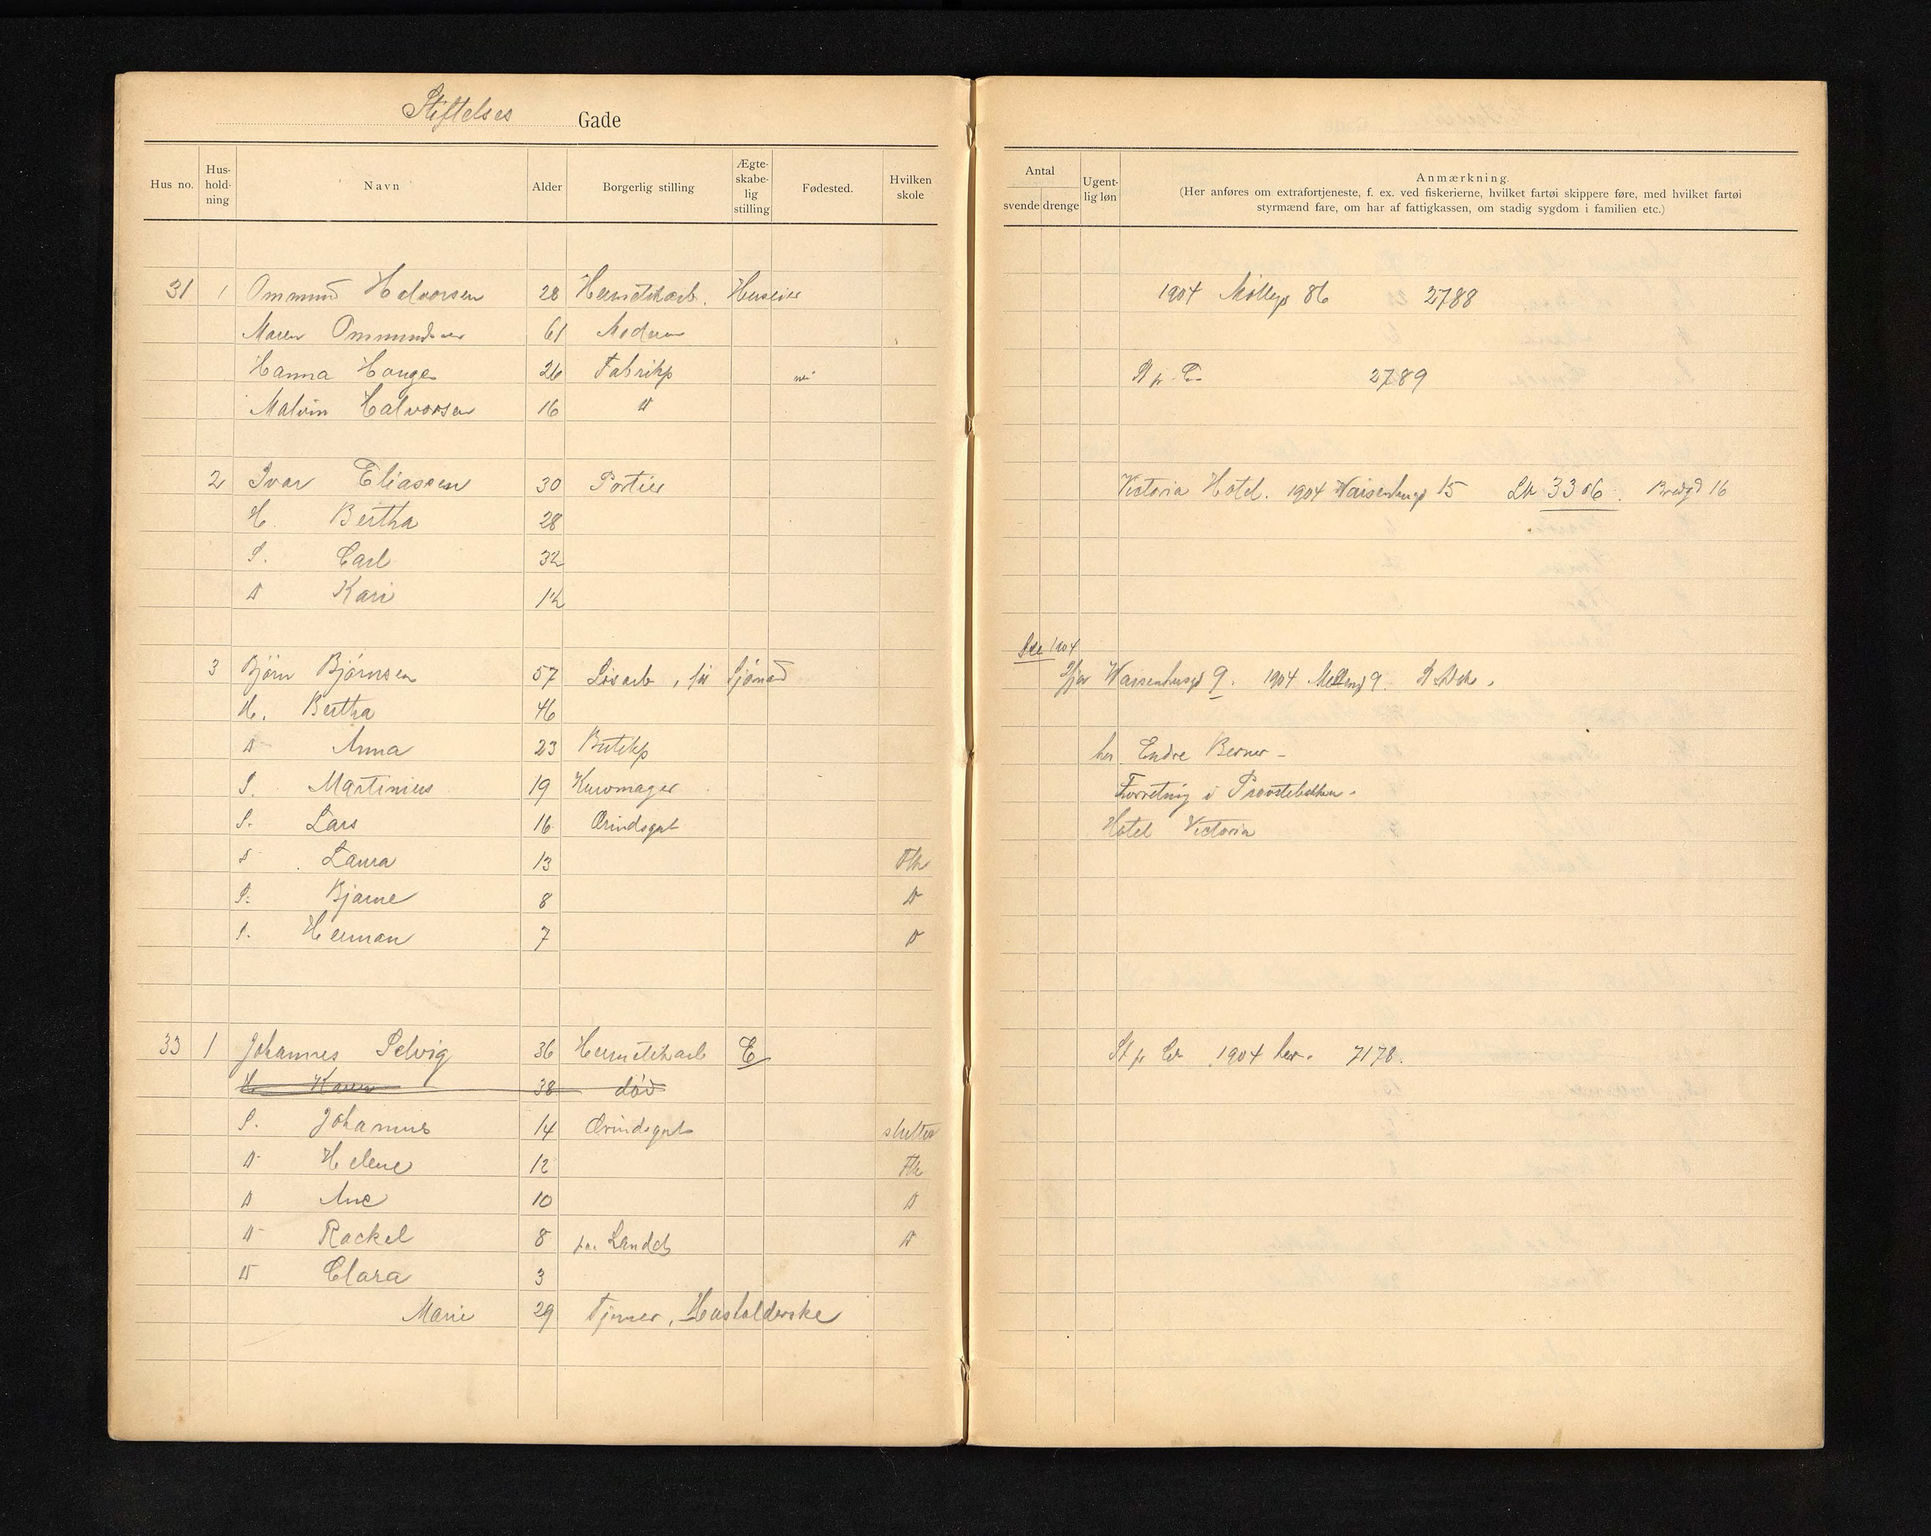 Stiftelses Gade
Hus no. Hus-hold-ning Navn Alder Borgerlig stilling Ægte-skabe-lig stilling Fødested. Hvilken skole
Antal svende drenge Ugent-lig løn Anmærkning.
(Her anføres om extrafortjeneste, f. ex. ved fiskerierne, hvilket fartøi skippere føre, med hvilket fartøi
styrmænd fare, om har af fattigkassen, om stadig sygdom i familien etc.)
31 1 Ommund Halvorsen 28 Hermetikarb. Huseier 1904 86 2788
Maren Ommundsen 61 Moderen
Hanna Hauge 26 Fabrikp 2789
Malvin Halvorsen 16 D
2 Ivar Eliassen 30 Portier Victoria Hotel. 1904 Waisenhusgd 15 3306. Bredgd 16
H. Bertha 28
S. Carl
D Kari
3 Bjørn Bjørnsen 57 Løsarb, før Sjømand 1904 Waisenhusgd 9. 1904
H. Bertha 46
D Anna 23 Butikp hos Endre Berner
S. Martinius 19 Kurvmager Forretnig i Provstebakken.
S. Lars 16 Ærindsgut Hotel Victoria
D Laura 13 Fk
S. Bjarne 8 D
S. Herman 7 D
33 1 Johannes Selvig 36 Hermetikarb E 1904 her. 7178.
H. Karen 38 død
S. Johannes 14 Ærindsgut slutter
D Helene 12 Fk
D Ane 10 D
D Rackel 8 paa Landet D
D Clara 3
Marie 29 Tjener, Husholderske